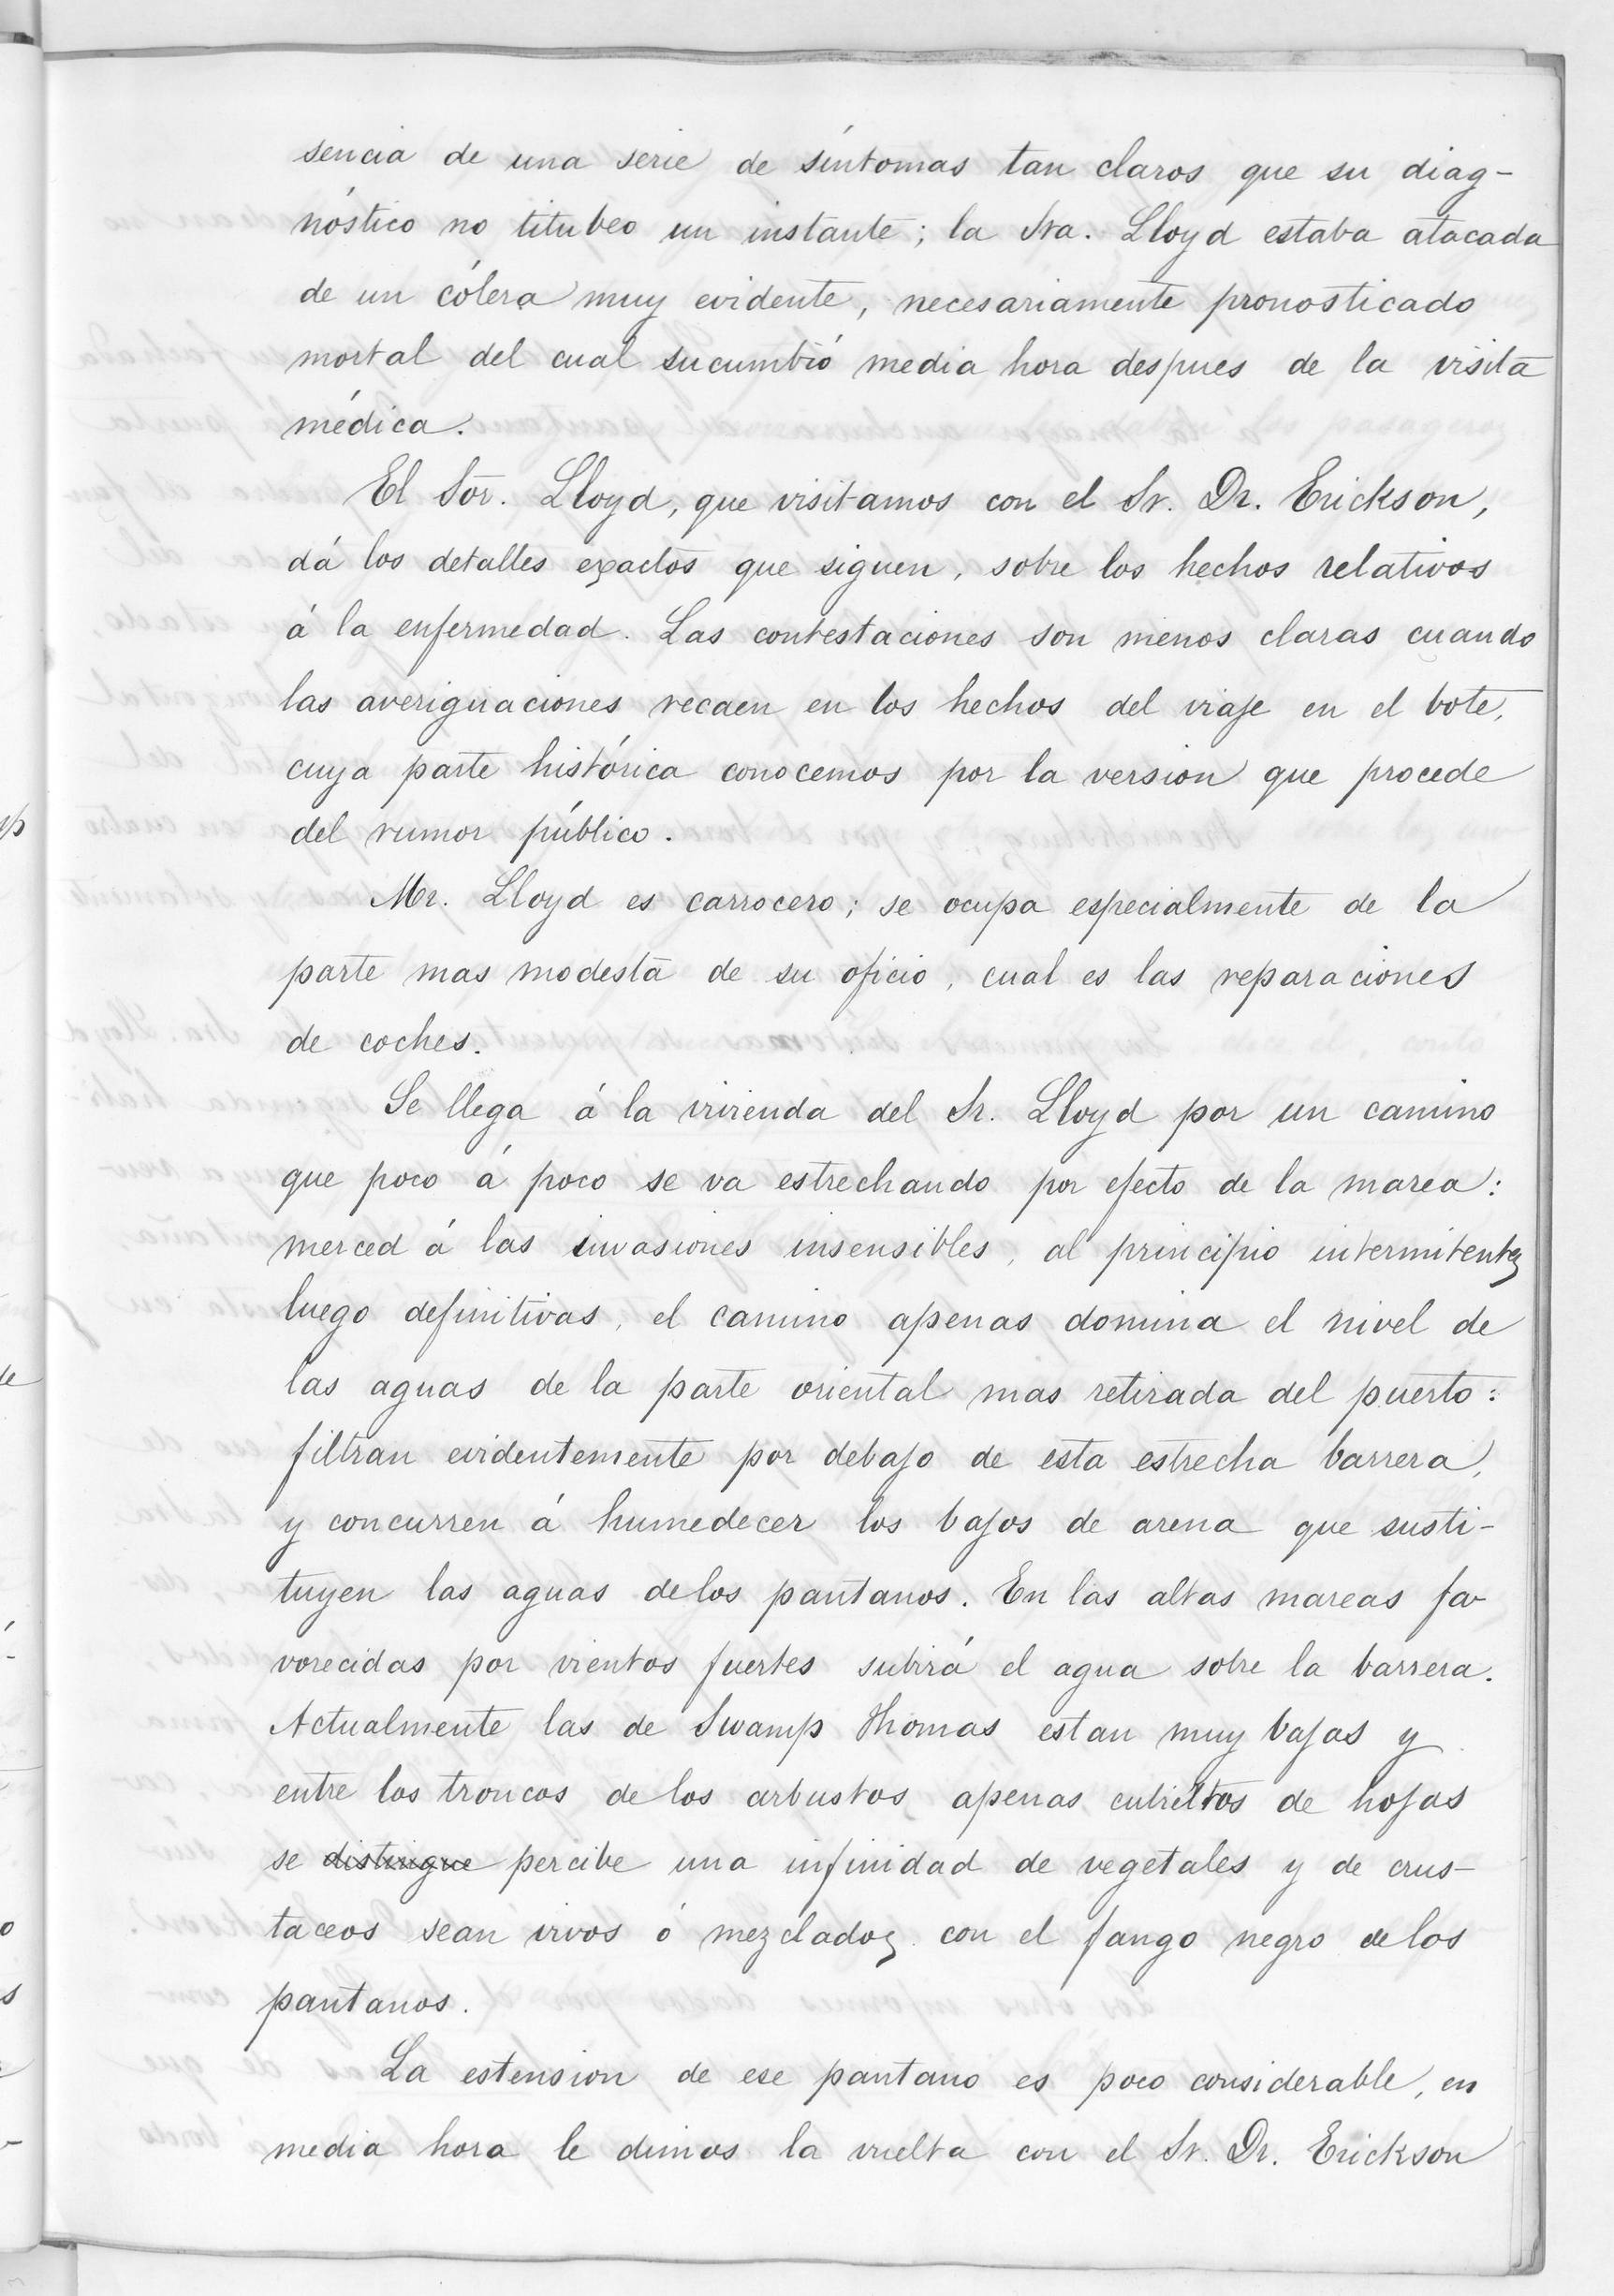 sencia de una serie de síntomas tan claros que su diag-
nóstico no titubeo un instante; la Sra. Lloyd estaba atacada
de un cólera muy evidente, necesariamente pronosticado
mortal del cual sucumbió media hora despues de la visita
médica.
El Sor. Lloyd, que visitamos con el Sr. Dr. Erickson,
dá los detalles exactos que siguen, sobre los hechos relativos
á la enfermedad. Las contestaciones son menos claras cuando
las averiguaciones recaen en los hechos del viaje en el bote,
cuya parte histórica conocemos por la version que procede
del rumor público.
Mr. Lloyd es carrocero; se ocupa especialmente de la
parte mas modesta de su oficio, cual es las reparaciones
de coches.
Se llega á la vivienda del Sr. Lloyd por un camino
que poco á poco se va estrechando por efecto de la marea:
merced á las invasiones insensibles, al principio intermitentes
luego definitivas, el camino apenas domina el nivel de
las aguas de la parte oriental mas retirada del puerto:
filtran evidentemente por debajo de esta estrecha barrera,
y concurren á humedecer los bajos de arena que susti-
tuyen las aguas de los pantanos. En las altas mareas fa-
vorecidas por vientos fuertes subirá el agua sobre la barrera.
Actualmente las de Swamp Thomas estan muy bajas y
entre los troncos de los arbustos apenas cubiertos de hojas
se distingue percibe una infinidad de vegetales y de crus-
taceos sean vivos ó mezclados con el fango negro de los
pantanos.
La estension de ese pantano es poco considerable, en
media hora le dimos la vuelta con el Sr. Dr. Erickson